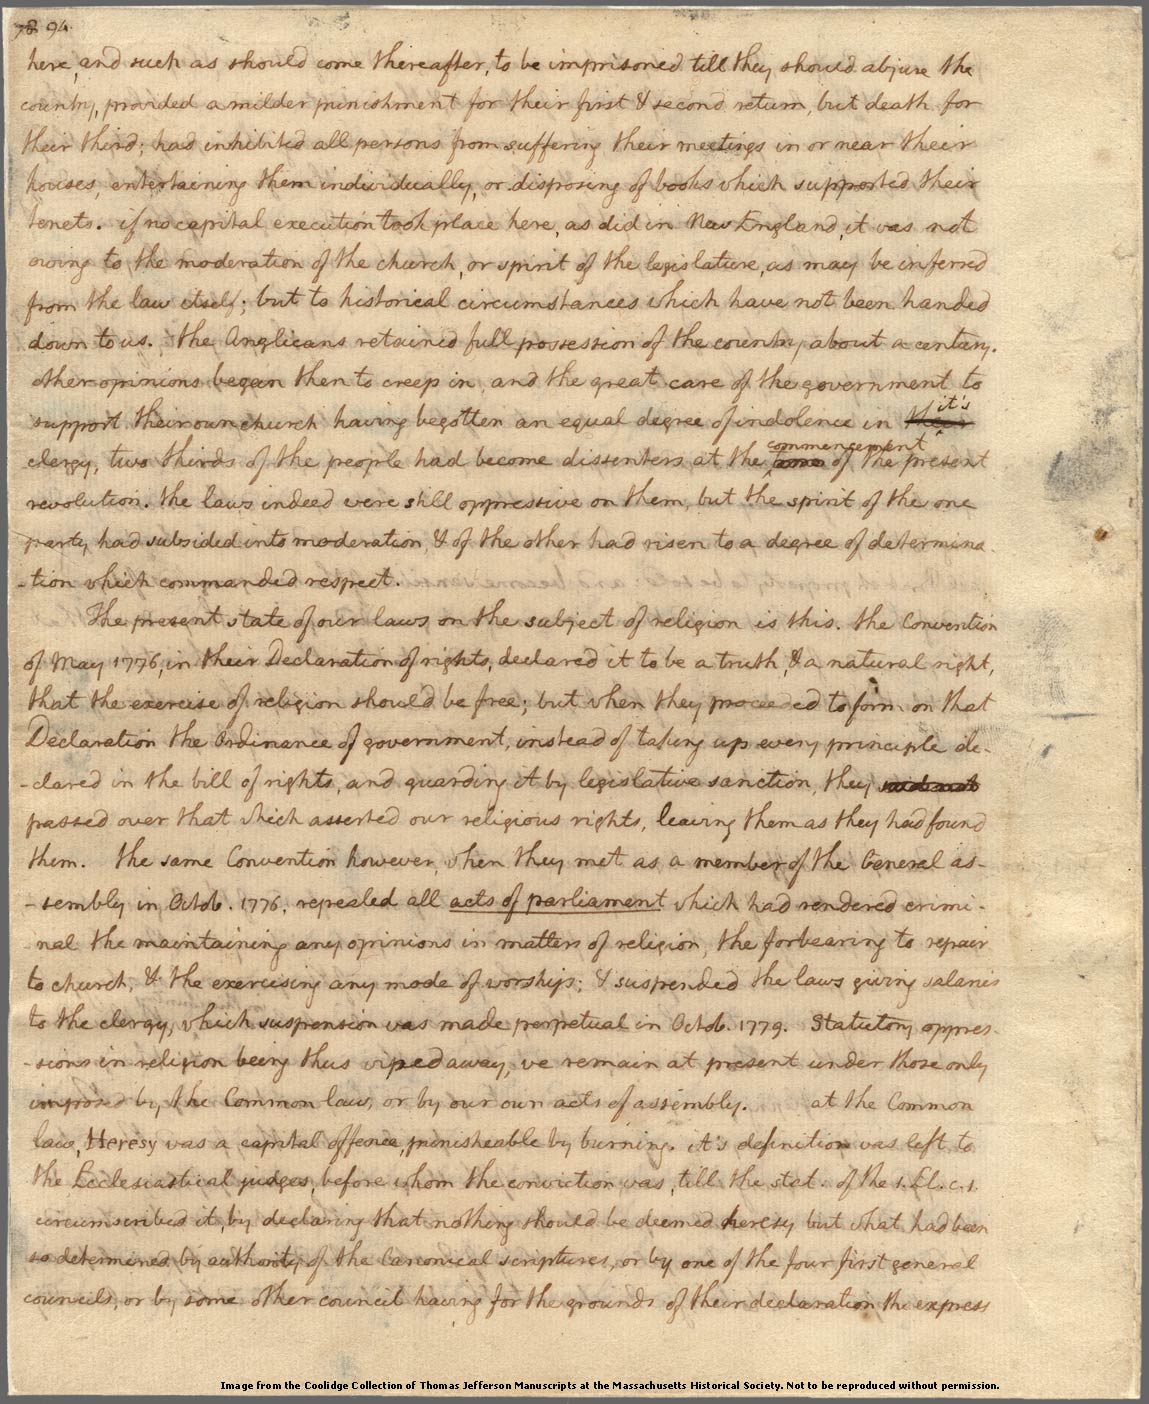 78 94
here, and such as should come thereafter, to be imprisoned till they should abjure the
country, provided a milder punishment for their first & second return, but death for
their third; had inhibited all persons from suffering their meetings in or near their
houses, entertaining them individually, or disposing of books which supported their
tenets. if no capital execution took place here, as did in New England, it was not
owing to the moderation of the church, or spirit of the legislature, as may be inferred
from the law itself; but to historical circumstances which have not been handed
down to us. the Anglicans retained full possession of the country about a century.
other opinions began then to creep in, and the great care of the government to
support their own church having begotten an equal degree of indolence in their it's
clergy, two thirds of the people had become dissenters at the commencement of the present
revolution. the laws indeed were still oppressive on them, but the spirit of the one
party, had subsided into moderation, & of the other had risen to a degree of determina-
-tion which commanded respect.
The present state of our laws on the subject of religion is this. the Convention
of May 1776, in their Declaration of rights, declared it to be a truth, & a natural right,
that the exercise of religion should be free; but when they proceeded to form on that
Declaration the Ordinance of government, instead of taking up every principle de-
-clared in the bill of rights, and guarding it by legislative sanction, they
passed over that which asserted our religious rights, leaving them as they had found
them. the same Convention however, when they met as a member of the General as-
-sembly in Octob. 1776, repealed all acts of parliament which had rendered crimi-
nal the maintaining any opinions in matters of religion, the forbearing to repair
to church, & the exercising any mode of worship; & suspended the laws giving salaries
to the clergy, which suspension was made perpetual in Octob. 1779. Statutory oppres-
-sions in religion being thus wiped away, we remain at present under those only
imposed by the Common law, or by our own acts of assembly. at the Common
law, Heresy was a capital offence, punisheable by burning. it's definition was left to
the Ecclesiastical judges, before whom the conviction was, till the stat. of the 1. El. c. 1.
circumscribed it, by declaring that nothing should be deemed heresy but what had been
so determined by authority of the Canonical scriptures, or by one of the four first general
councils, or by some other council having for the grounds of their declaration the express
Image from the Coolidge Collection of Thomas Jefferson Manuscripts at the Massachusetts Historical Society. Not to be reproduced without permission.